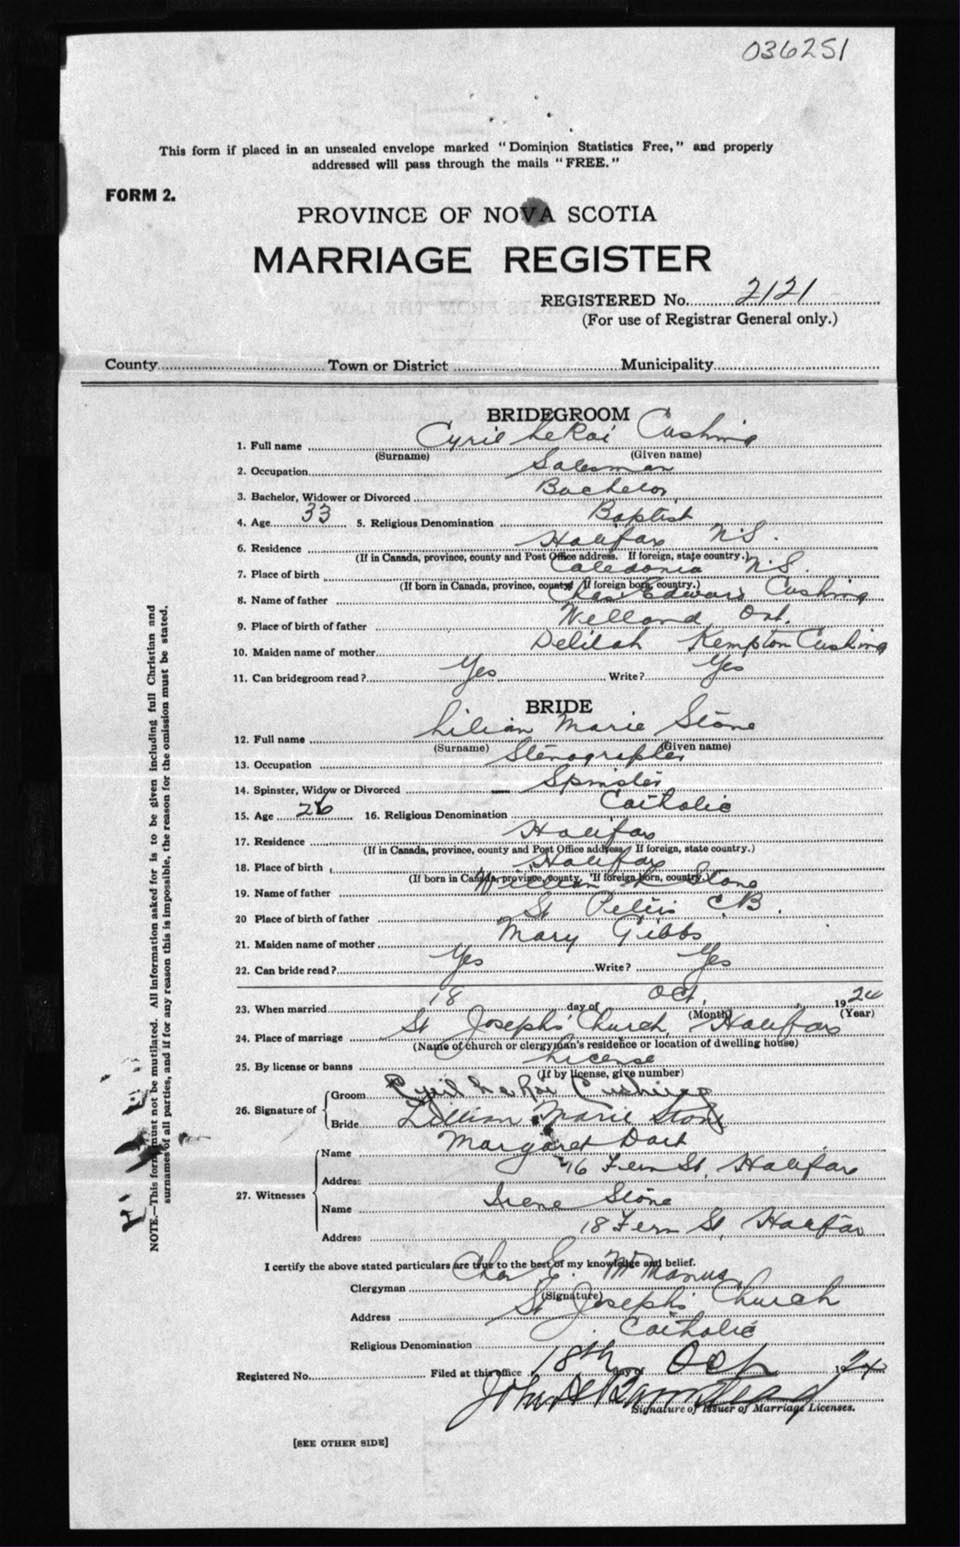 036251
This form if placed in an unsealed envelope marked "Dominion Statistics Free," and properly
addressed will pass through the mails "FREE."
FORM 2.
PROVINCE OF NOVA SCOTIA
MARRIAGE REGISTER
REGISTERED No. 2121
(For use of Registrar General only.)
County Town or District Municipality
BRIDEGROOM
1. Full name Cyril LeRoi Cushing
(Surname) (Given name)
2. Occupation Salesman
3. Bachelor, Widower or Divorced Bachelor
4. Age 33 5. Religious Denomination Baptist
6. Residence Halifax N.S.
(If in Canada, province, county and Post Office address. If foreign, state country.)
7. Place of birth Caledonia N.S.
(If born in Canada, province, county. If foreign born, country.)
8. Name of father Chas Edward Cushing
9. Place of birth of father Welland Ont.
10. Maiden name of mother Delilah Kempton Cushing
11. Can bridegroom read? Yes Write? Yes
BRIDE
12. Full name Lilian Marie Stone
(Surname) (Given name)
13. Occupation Stenographer
14. Spinster, Widow or Divorced Spinster
15. Age 26 16. Religious Denomination Catholic
17. Residence Halifax
(If in Canada, province, county and Post Office address. If foreign, state country.)
18. Place of birth Halifax
(If born in Canada, province, county. If foreign born, country.)
19. Name of father William Stone
20 Place of birth of father St Peters C.B.
21. Maiden name of mother Mary Gibbs
22. Can bride read? Yes Write? Yes
23. When married 18 day of Oct. 1924
(Month) (Year)
24. Place of marriage St Joseph's Church, Halifax
(Name of church or clergyman's residence or location of dwelling house)
25. By license or banns License
(If by license, give number)
26. Signature of Groom Cyril LeRoi Cushing
Bride Lillian Marie Stone
27. Witnesses Name Margaret Dart
Address 16 Fern St, Halifax
Name Irene Stone
Address 18 Fern St, Halifax
I certify the above stated particulars are true to the best of my knowledge and belief.
Clergyman Chas E. McManus
(Signature)
Address St Joseph's Church
Religious Denomination Catholic
Registered No. Filed at this office 18th day of Oct 1924
John
Signature of Issuer of Marriage Licenses.
[SEE OTHER SIDE]
NOTE.—This form must not be mutilated. All information asked for is to be given including full Christian and
surnames of all parties, and if for any reason this is impossible, the reason for the omission must be stated.